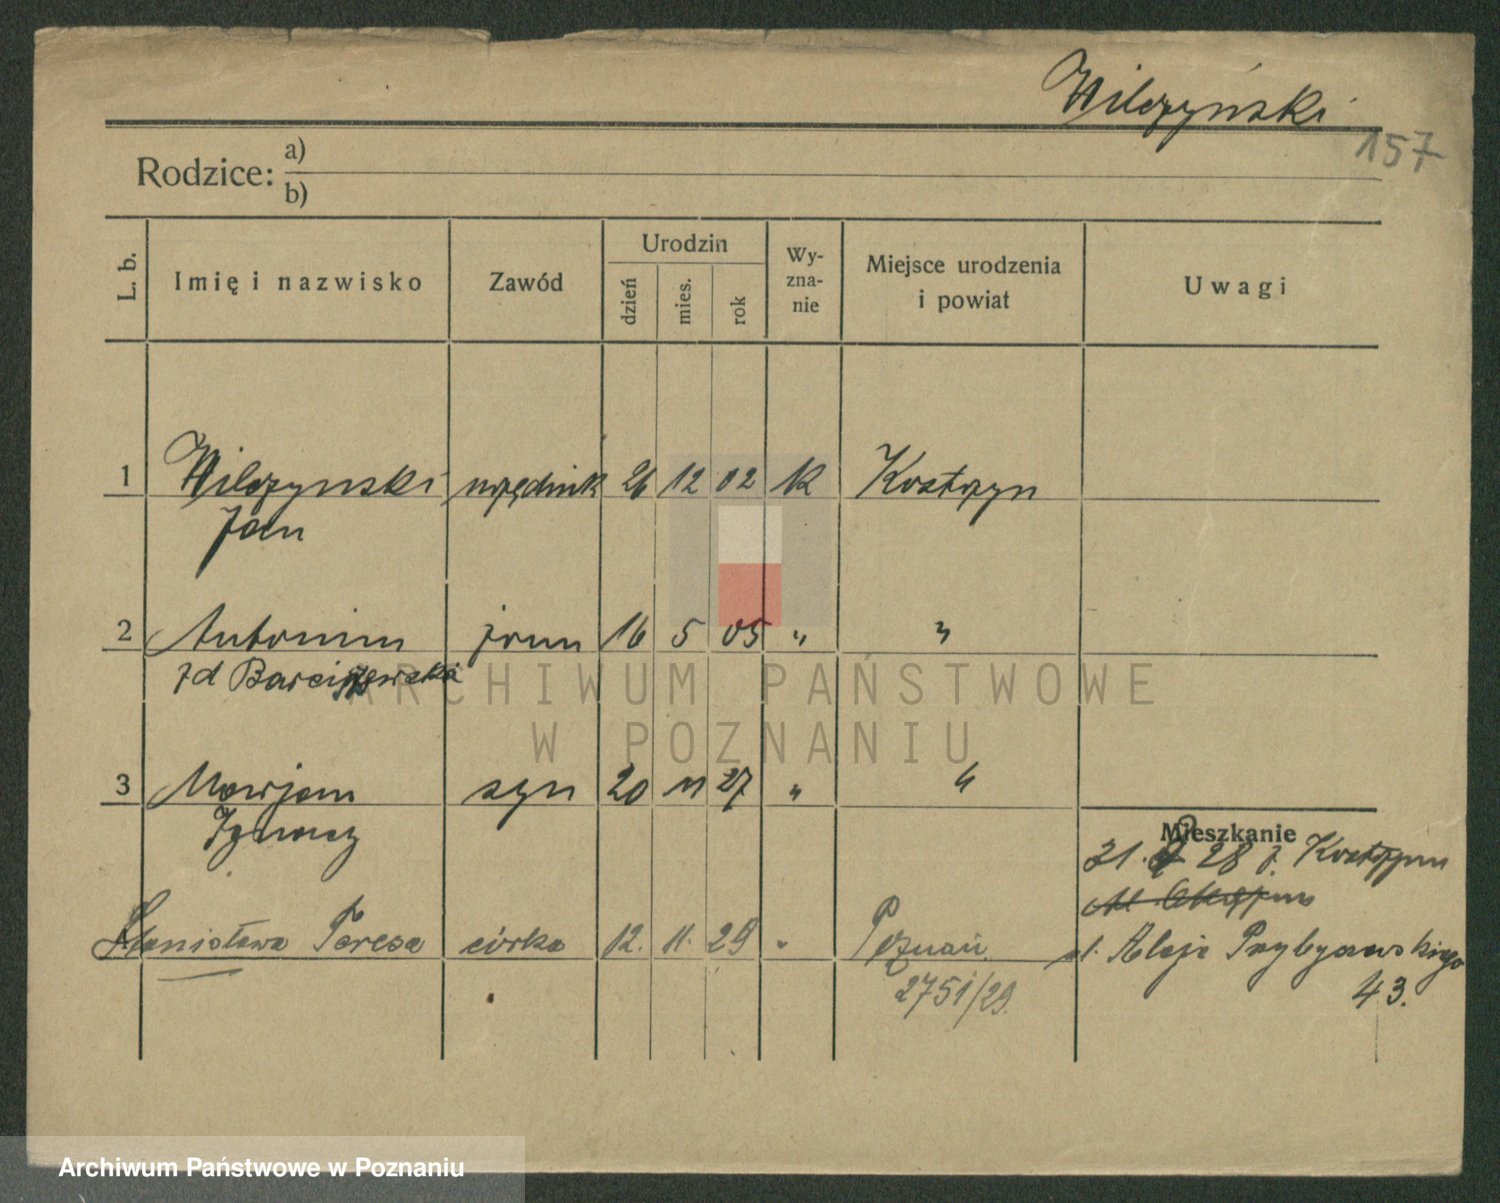 Wilczyński
157
Rodzice: a)
b)
L. b. Imię i nazwisko Zawód Urodzin dzień mies. rok Wyznanie Miejsce urodzenia i powiat Uwagi
1 Wilczynski urzędnik 26 12 02 k Kostrzyn
Jan
2 Antonina żona 16 5 05 " "
zd
3 Marjan syn 20 11 27 " "
Ignacy
Mieszkanie
21. 28 z. Kostrzyna
Stanisława Teresa córka 12. 11. 29 " Poznań
Aleja Przybyszewskiego
2751/29. 43.
ARCHIWUM PAŃSTWOWE
W POZNANIU
Archiwum Państwowe w Poznaniu